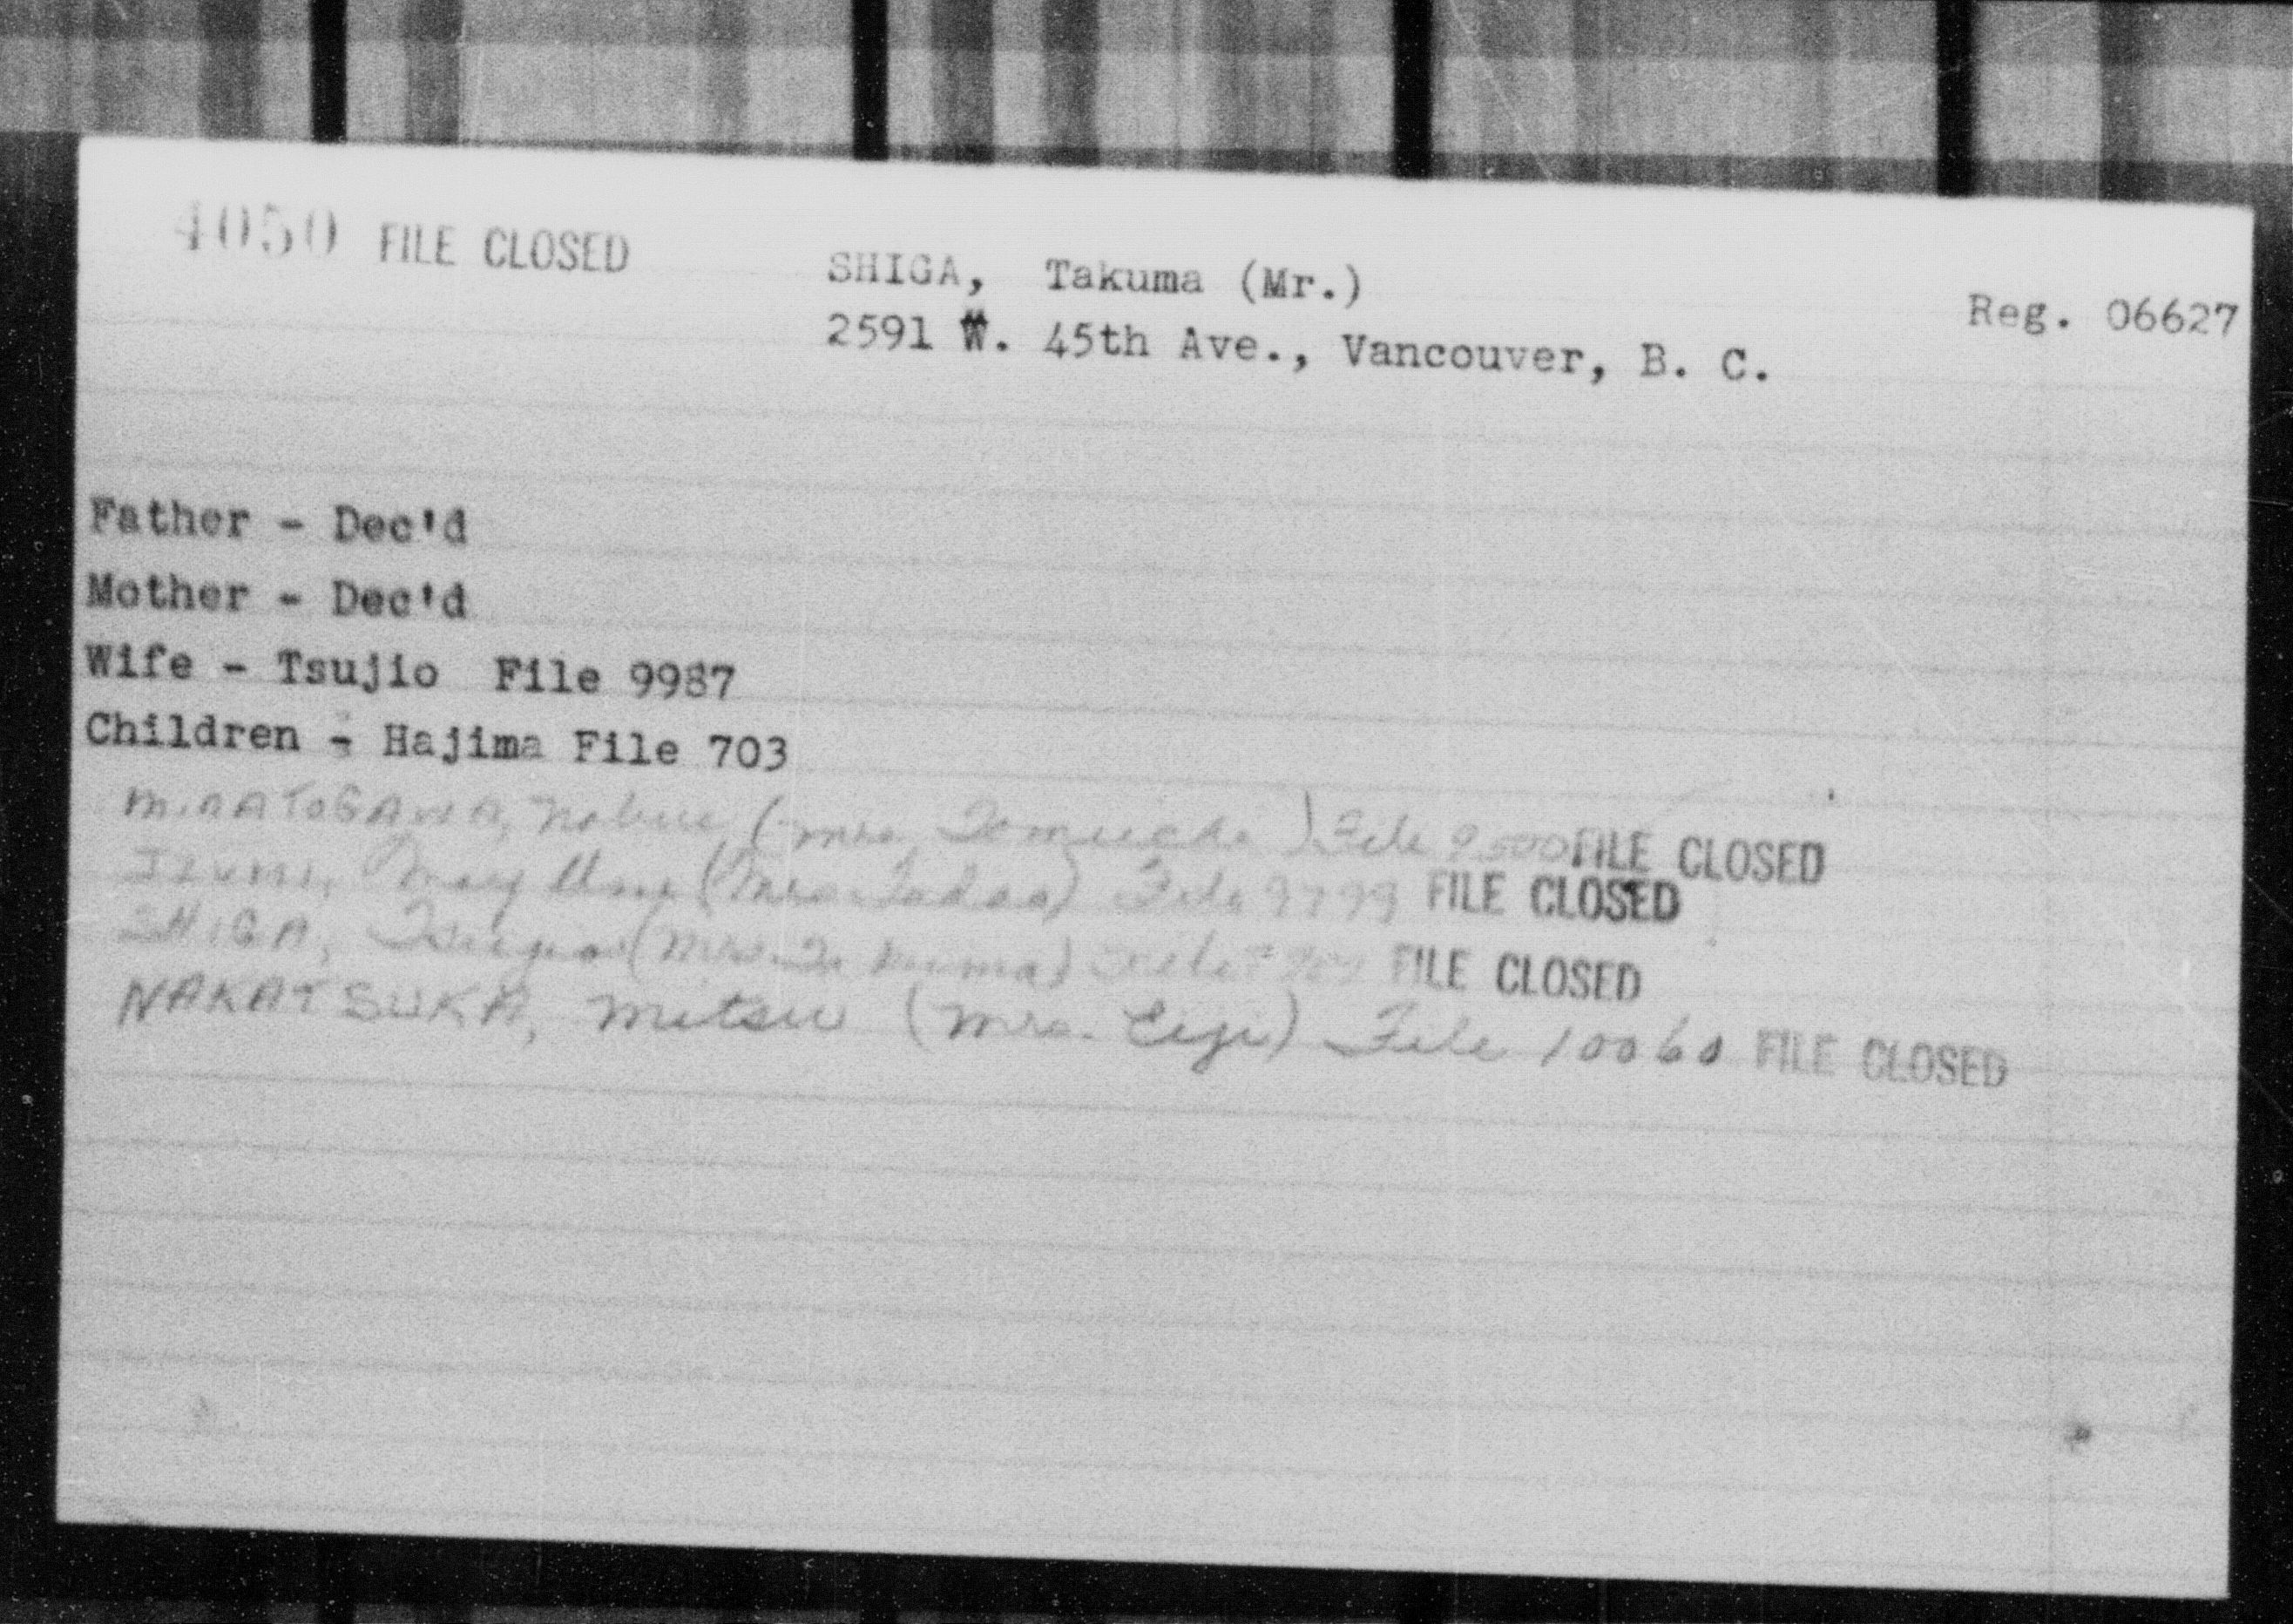 4050 FILE CLOSED
SHIGA, Takuma (Mr.)
Reg. 06627
2591 W. 45th Ave., Vancouver, B. C.
Father - Dec'd
Mother - Dec'd
Wife - Tsujio File 9987
Children - Hajima File 703
MINATOGAWA, Nobue (Mrs ) File 9500 FILE CLOSED
IZUMI, May (Mrs. Tadao) File 9799 FILE CLOSED
SHIGA, (Mrs. Takuma) File FILE CLOSED
NAKATSUKA, Mitsu (Mrs. Eiji) File 10060 FILE CLOSED